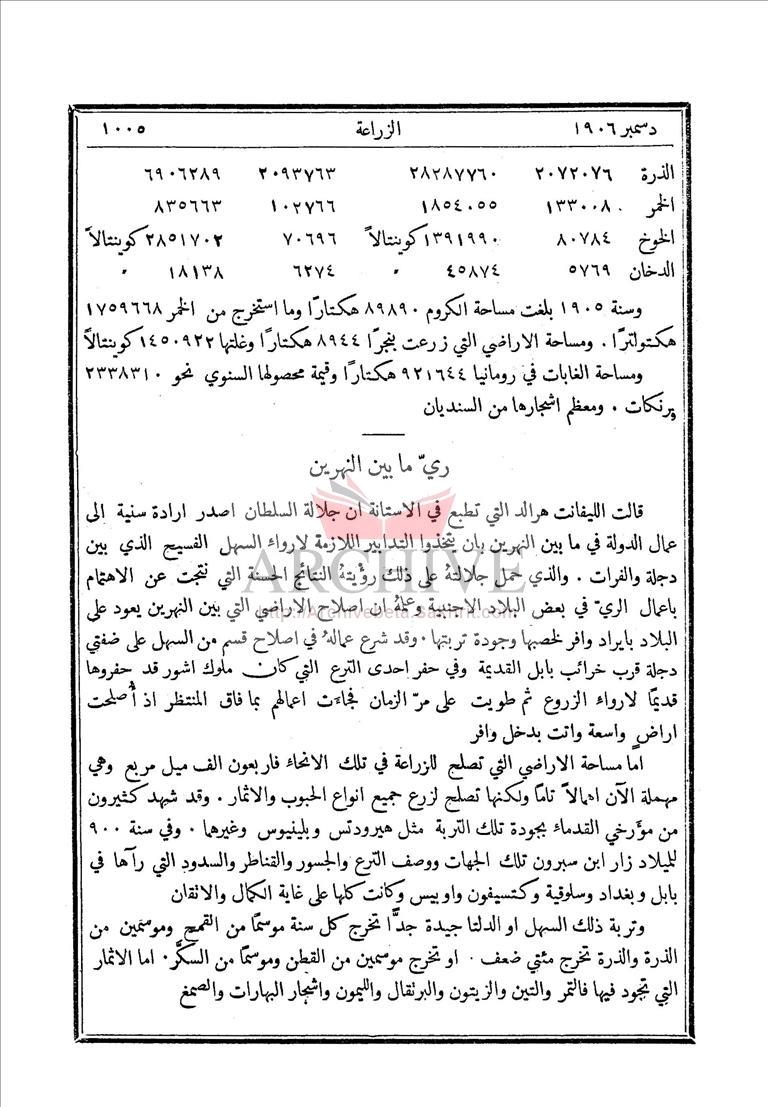 دسمبر ١٩٠٦ الزراعة ١٠٠٥
الذرة ٢٠٧٢٠٧٦ ٢٨٢٨٧٧٦٠ ٢٠٩٣٧٦٣ ٦٩٠٦٢٨٩
الخمر ١٣٣٠٠٨ ١٨٥٤٠٥٥ ١٠٢٧٦٦ ٨٣٥٦٦٣
الخوخ ٨٠٧٨٤ ١٣٩١٩٩٠ كوينتالاً ٧٠٦٩٦ ٢٨٥١٧٠٢ كوينتالاً
الدخان ٥٧٦٩ ٤٥٨٧٤ " ٦٢٧٤ ١٨١٣٨ "
وسنة ١٩٠٥ بلغت مساحة الكروم ٨٩٨٩٠ هكتارًا وما استخرج من الخمر ١٧٥٩٦٦٨
هكتولترًا . ومساحة الاراضي التي زرعت بنجرًا ٨٩٤٤ هكتارًا وغلتها ١٤٥٠٩٢٢ كوينتالاً
ومساحة الغابات في رومانيا ٩٢١٦٤٤ هكتارًا وقيمة محصولها السنوي نحو ٢٣٣٨٣١٠
فرنكات . ومعظم اشجارها من السنديان
ريّ ما بين النهرين
قالت الليفانت هرالد التي تطبع في الاستانة ان جلالة السلطان اصدر ارادة سنية الى
عمال الدولة في ما بين النهرين بان يتخذوا التدابير اللازمة لارواء السهل الفسيح الذي بين
دجلة والفرات . والذي حمل جلالتهُ على ذلك رؤيتهُ النتائج الحسنة التي نتجت عن الاهتمام
باعمال الريّ في بعض البلاد الاجنبية وعلمهُ ان اصلاح الاراضي التي بين النهرين يعود على
البلاد بايراد وافر لخصبها وجودة تربتها . وقد شرع عمالهُ في اصلاح قسم من السهل على ضفتي
دجلة قرب خرائب بابل القديمة وفي حفر احدى الترع التي كان ملوك اشور قد حفروها
قديمًا لارواء الزروع ثم طويت على مرّ الزمان فجاءت اعمالهم بما فاق المنتظر اذ أُصلحت
اراضٍ واسعة واتت بدخل وافر
اما مساحة الاراضي التي تصلح للزراعة في تلك الانحاء فاربعون الف ميل مربع وهي
مهملة الآن اهمالاً تامًا ولكنها تصلح لزرع جميع انواع الحبوب والاثمار . وقد شهد كثيرون
من مؤرخي القدماء بجودة تلك التربة مثل هيرودتس وبلينيوس وغيرهما . وفي سنة ٩٠٠
للميلاد زار ابن سبرون تلك الجهات ووصف الترع والجسور والقناطر والسدود التي رآها في
بابل وبغداد وسلوقية وكتسيفون واوبيس وكانت كلها على غاية الكمال والاتقان
وتربة ذلك السهل او الدلتا جيدة جدًّا تخرج كل سنة موسمًا من القمح وموسمين من
الذرة والذرة تخرج مئتي ضعف . او تخرج موسمين من القطن وموسمًا من السكَّر . اما الاثمار
التي تجود فيها فالتمر والتين والزيتون والبرتقال والليمون واشجار البهارات والصمغ
ARCHIVE
http://Archivebeta.Sakhrit.com